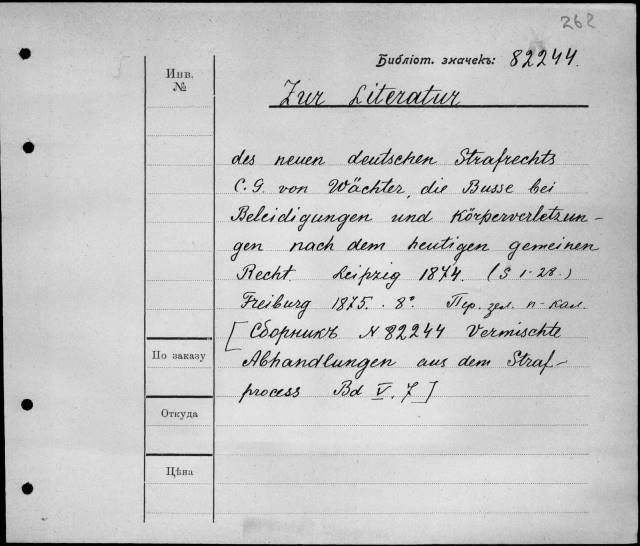 262
Библіот. значекъ: 82244.
Инв.
№
Zur Literatur
des neuen deutschen Strafrechts
C. G. von Wächter, die Busse bei
Beleidigungen und Körperverletzun-
gen nach dem heutigen gemeinen
Recht. Leipzig 1874. (S 1-28.)
Freiburg 1875. 8°. Пер. зел. п-кал.
[Сборникъ N 82244 Vermischte
Abhandlungen aus dem Straf-
process Bd V. 7]
По заказу
Откуда
Цѣна